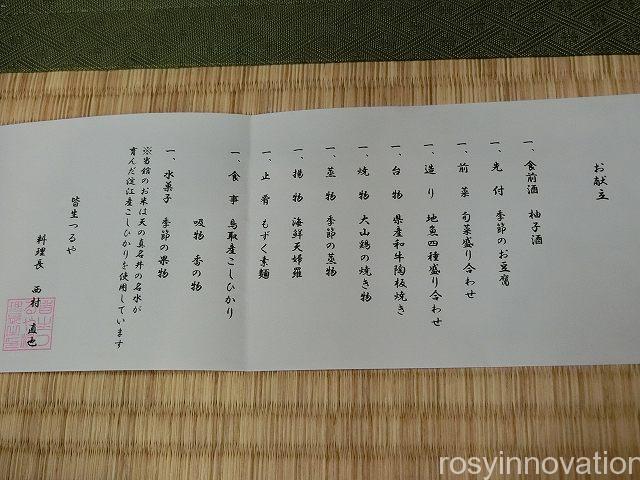 お献立
一、食前酒　柚子酒
一、先　付　季節のお豆腐
一、前　菜　旬菜盛り合わせ
一、造　り　地魚四種盛り合わせ
一、台　物　県産和牛陶板焼き
一、焼　物　大山鶏の焼き物
一、蒸　物　季節の蒸物
一、揚　物　海鮮天婦羅
一、止　肴　もずく素麺
一、食　事　鳥取産こしひかり
吸物　香の物
一、水菓子　季節の果物
※当館のお米は天の真名井の名水が
育んだ淀江産こしひかりを使用しています
皆生つるや
料理長　西村　直也
rosyinnovation